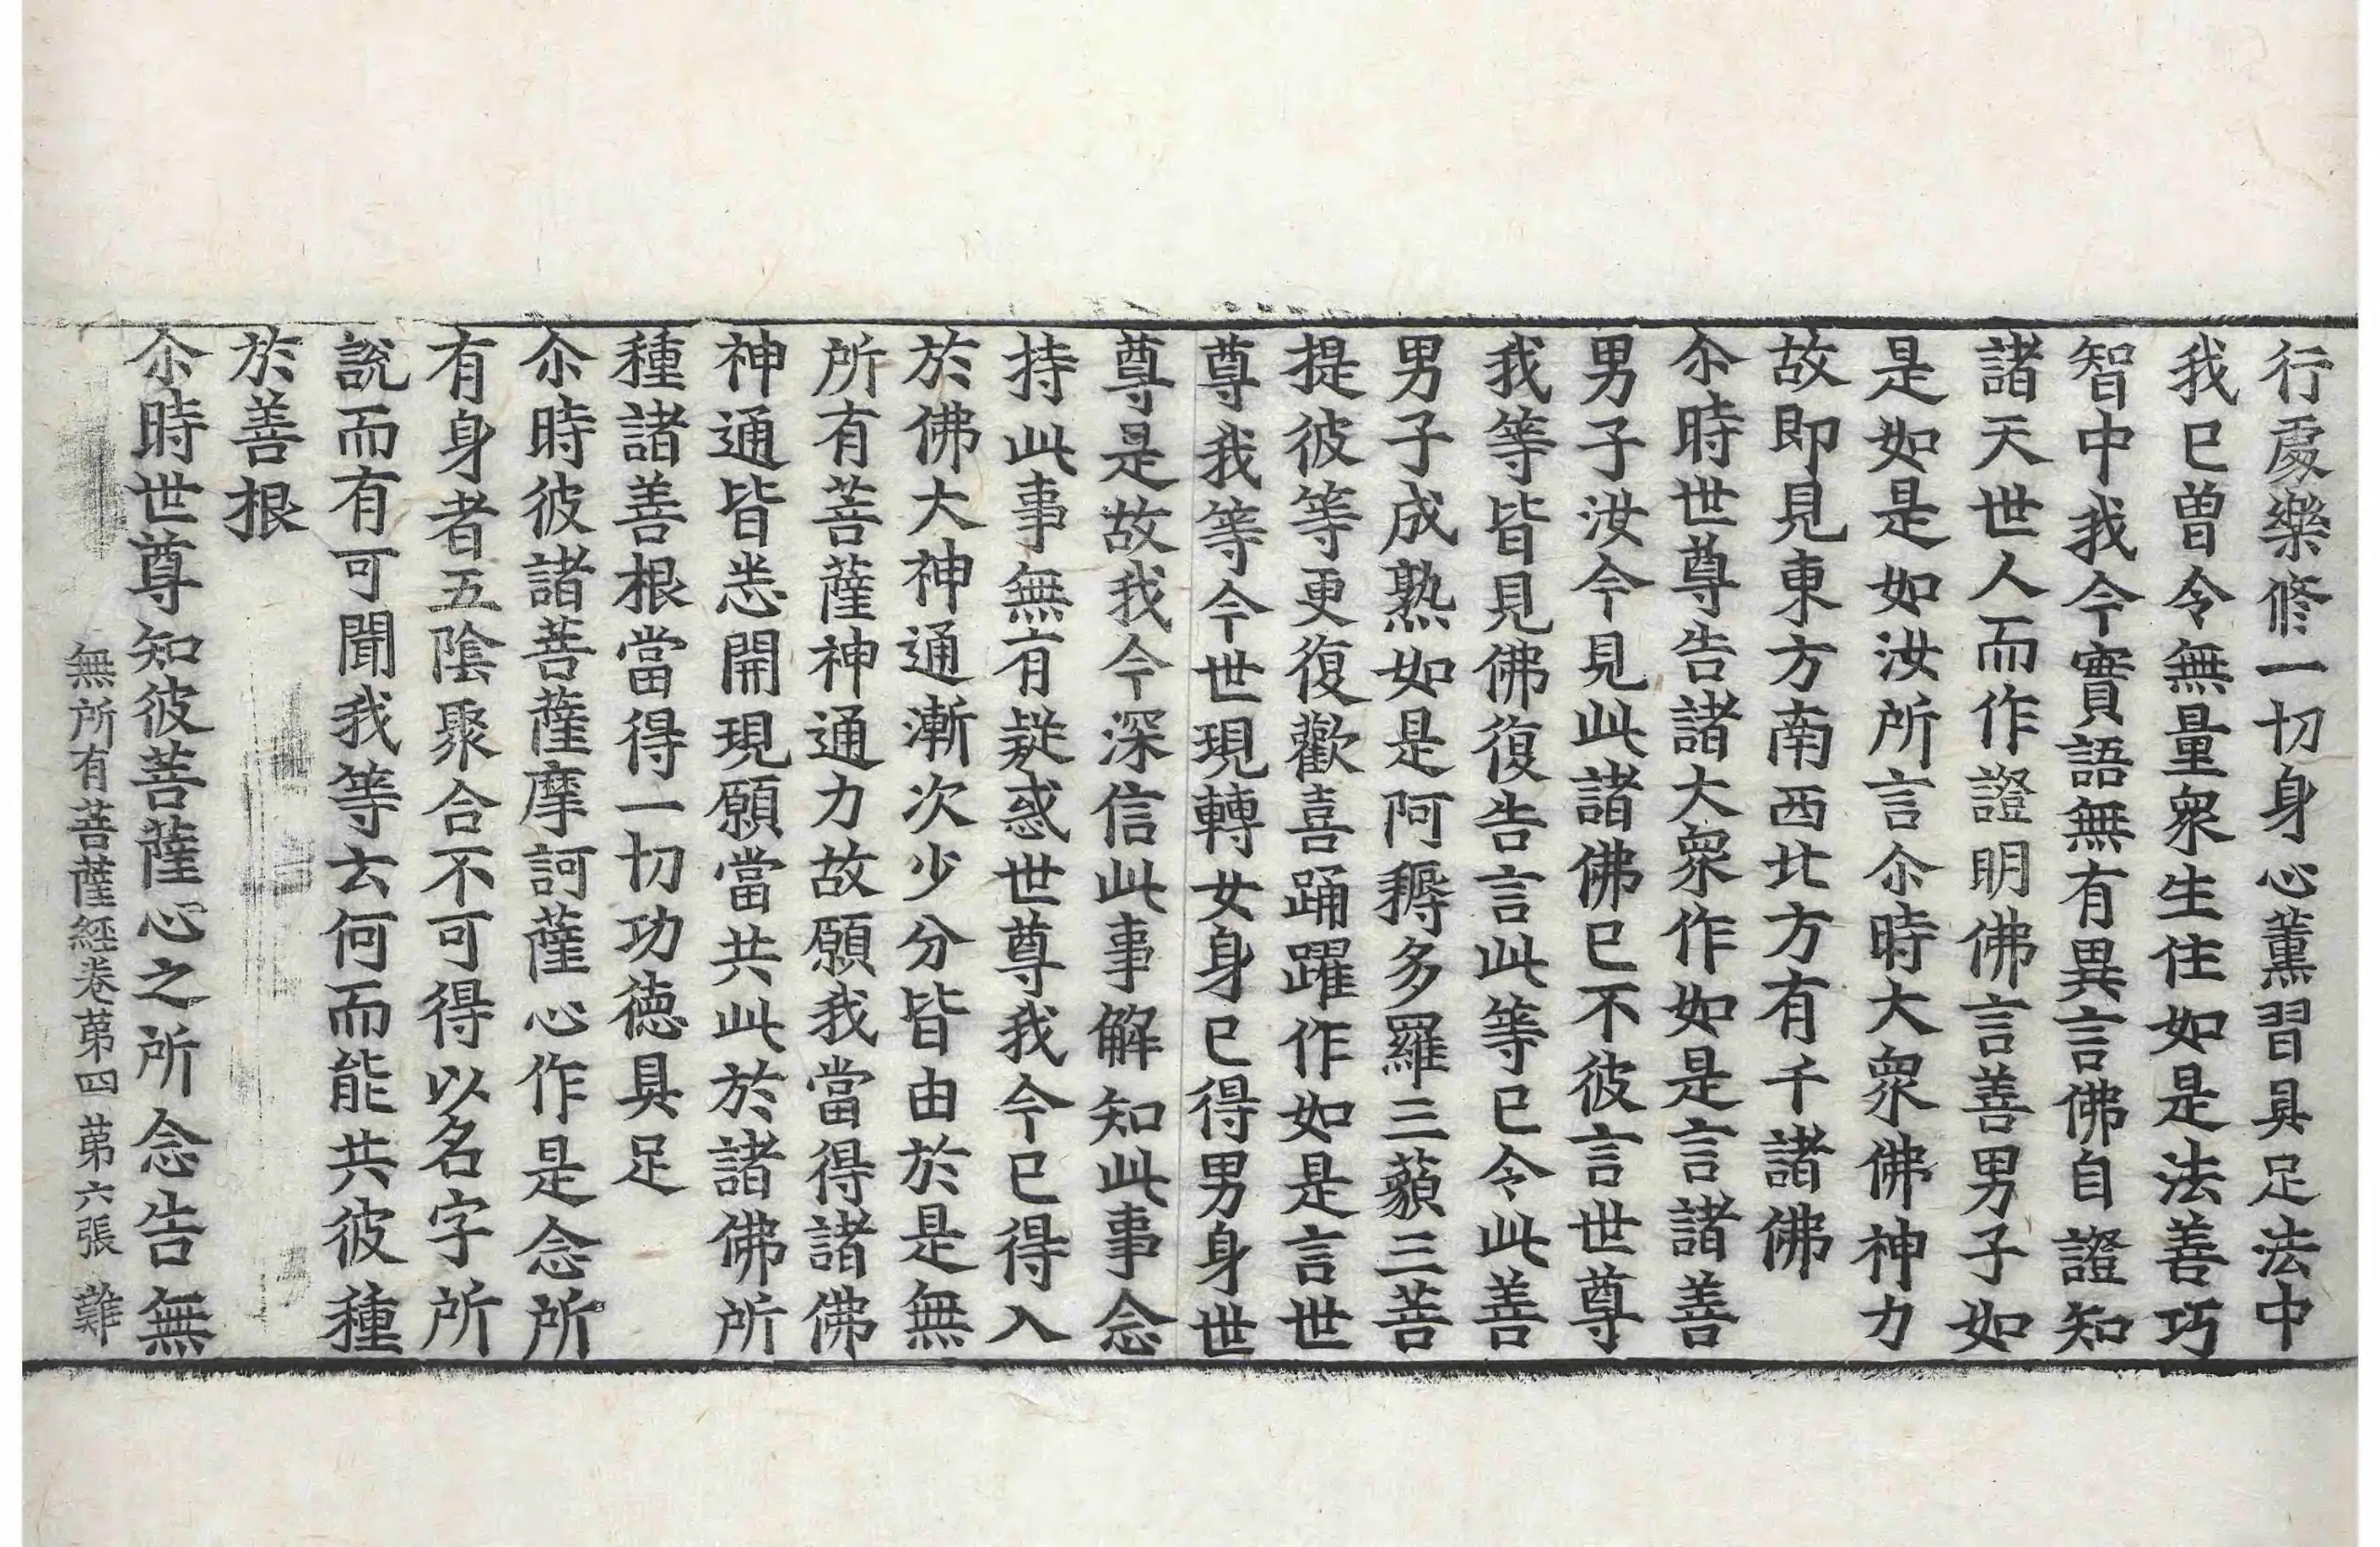 行處樂修一切身心薰習具足法中
我已曾令無量衆生住如是法善巧
智中我今實語無有異言佛自證知
諸天世人而作證明佛言善男子如
是如是如汝所言尒時大衆佛神力
故即見東方南西北方有千諸佛
尒時世尊告諸大衆作如是言諸善
男子汝今見此諸佛已不彼言世尊
我等皆見佛復告言此等已令此善
男子成熟如是阿耨多羅三藐三菩
提彼等更復歡喜踊躍作如是言世
尊我等今世現轉女身已得男身世
尊是故我今深信此事解知此事念
持此事無有疑惑世尊我今已得入
於佛大神通漸次少分皆由於是無
所有菩薩神通力故願我當得諸佛
神通皆悉開現願當共此於諸佛所
種諸善根當得一切功德具足
尒時彼諸菩薩摩訶薩心作是念所
有身者五陰聚合不可得以名字所
說而有可聞我等去何而能共彼種
於善根
尒時世尊知彼菩薩心之所念告無
無所有菩薩經卷第四 第六張 難